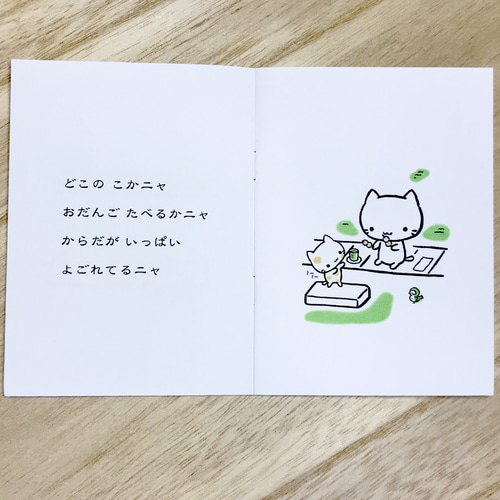 どこの こかニャ
おだんご たべるかニャ
からだが いっぱい
よごれてるニャ